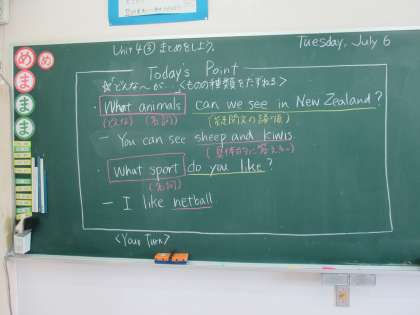 Unit 4 ③ まとめをしよう。
Tuesday, July 6
Today's Point
☆"どんな〜が" 〈ものの種類をたずねる〉
・What animals can we see in New Zealand?
(どんな) (名詞) (疑問文の語順)
- You can see sheep and kiwis.
(具体的に答える。)
・What sport do you like?
(名詞)
- I like netball
<Your Turn>
め
め
ま
ま